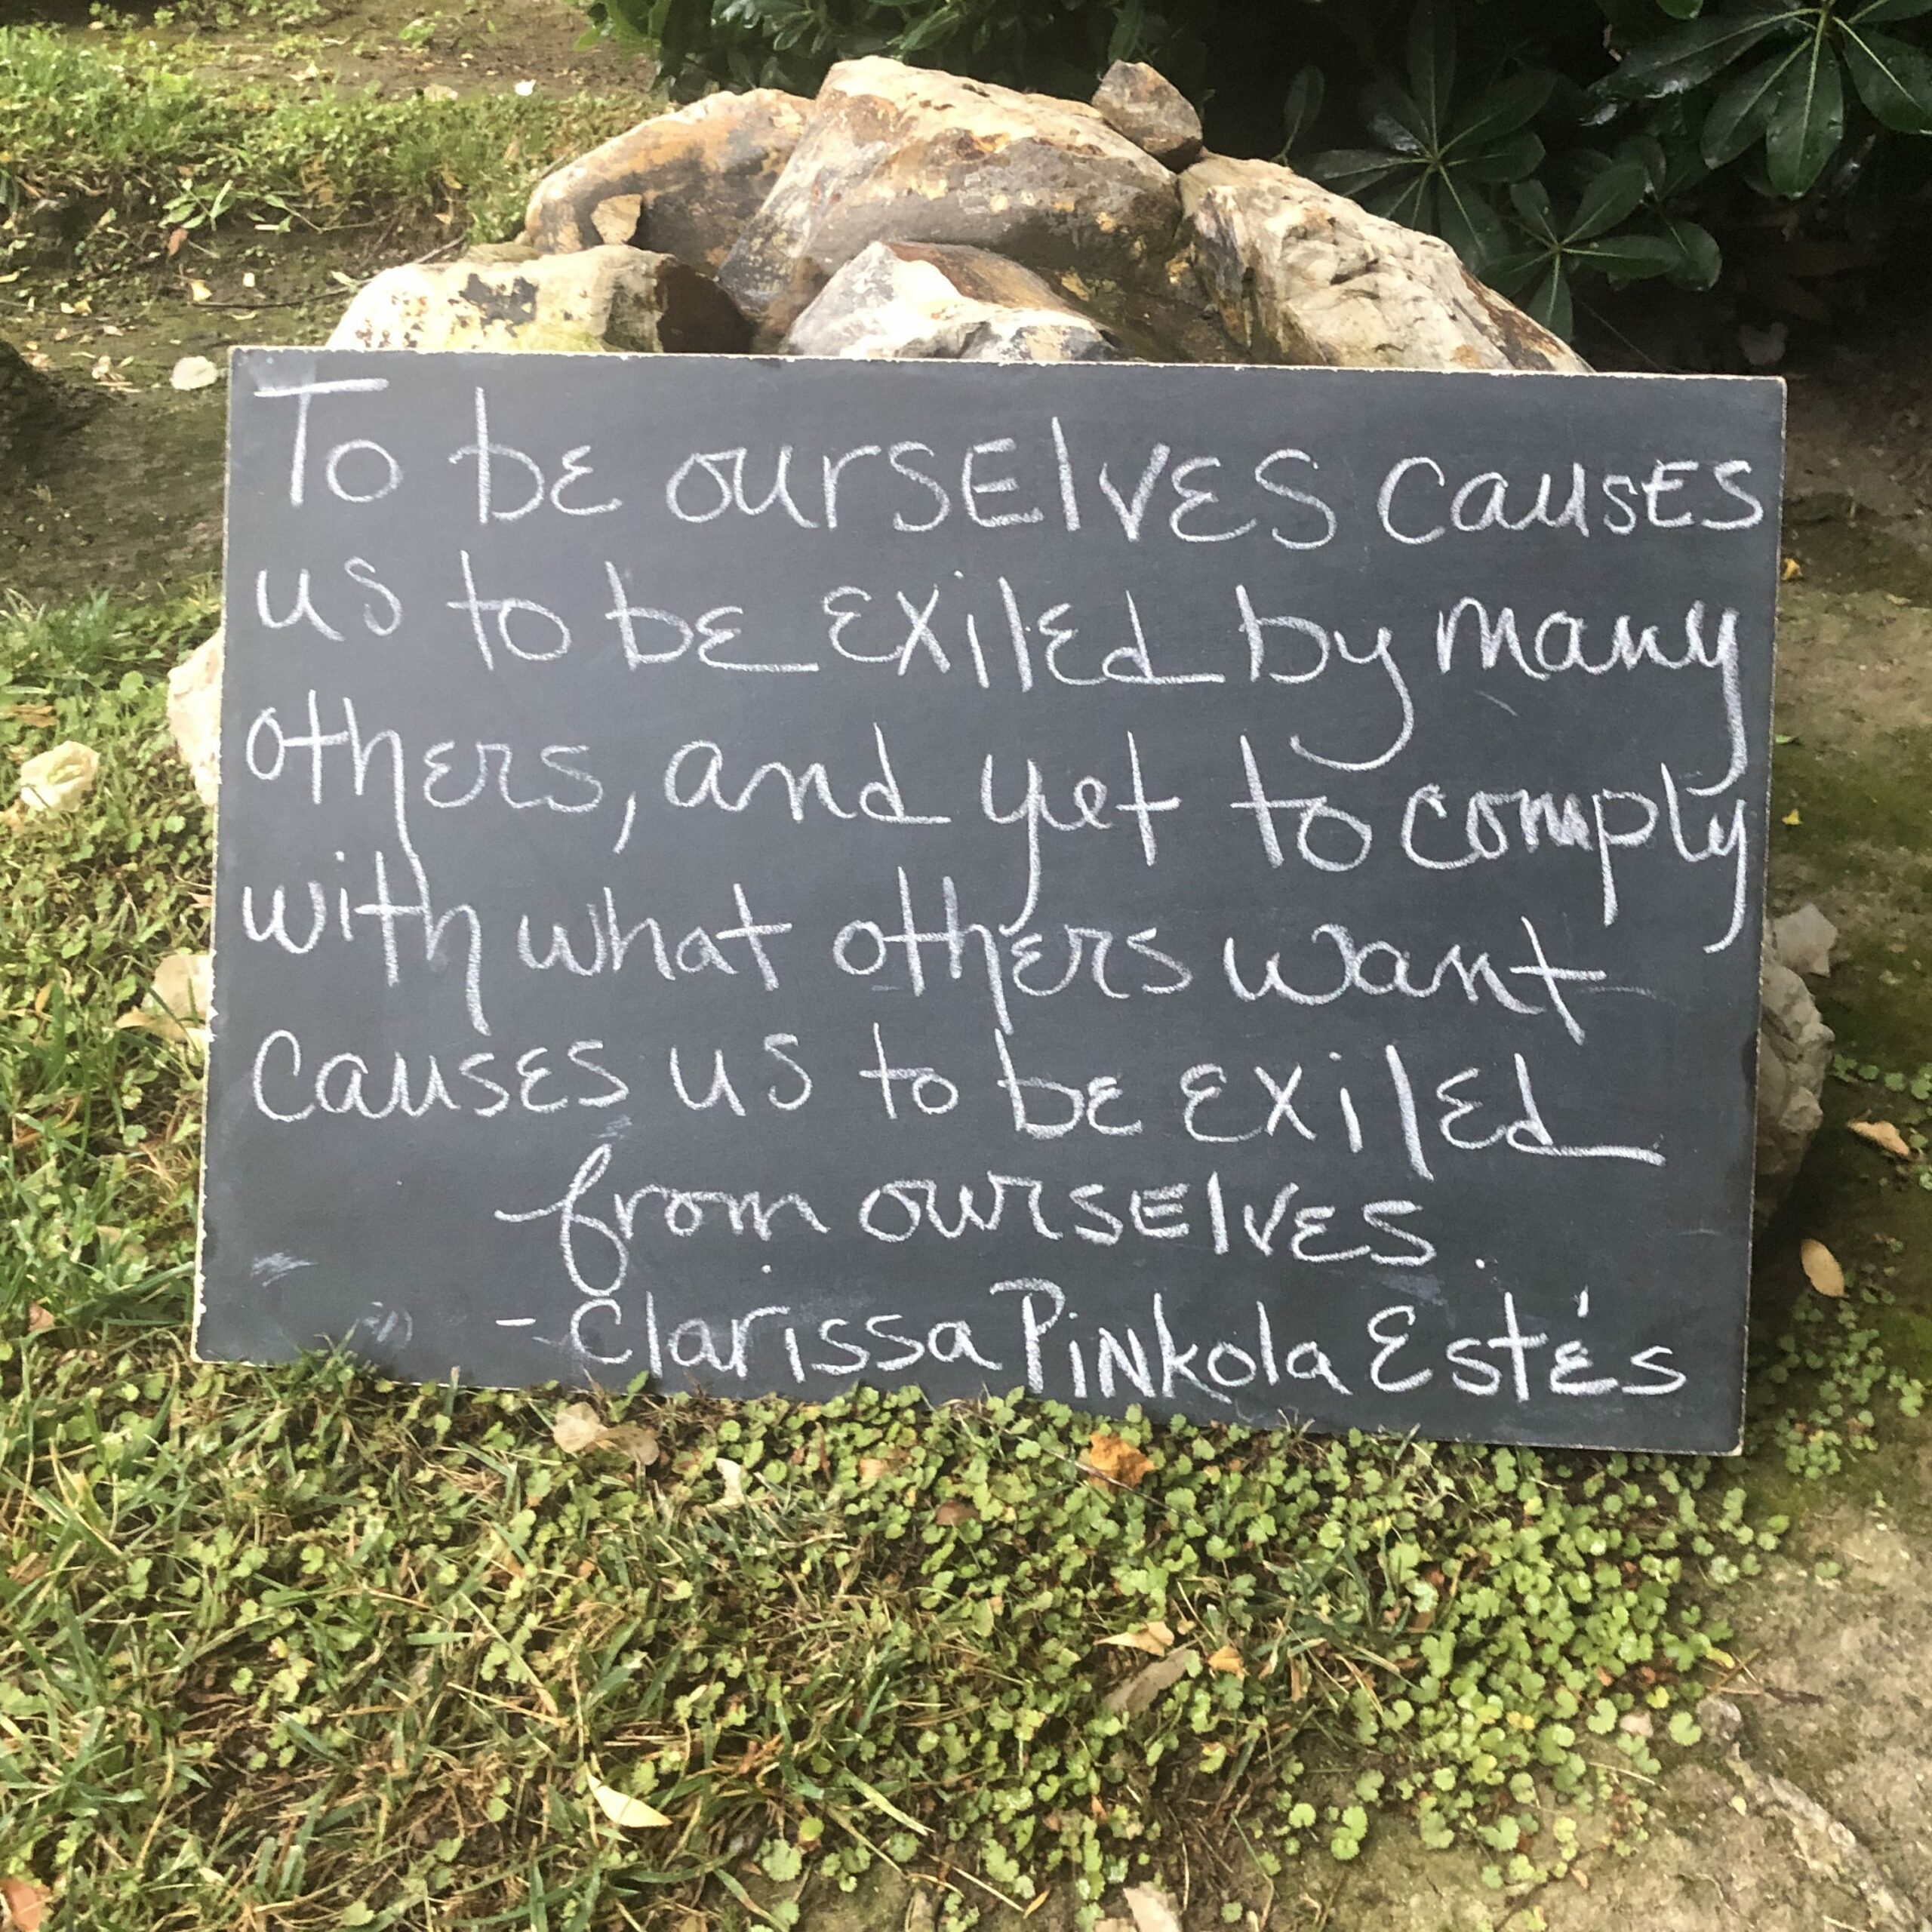 To be ourselves causes
us to be exiled by many
others, and yet to comply
with what others want
causes us to be exiled
from ourselves.
- Clarissa Pinkola Estés